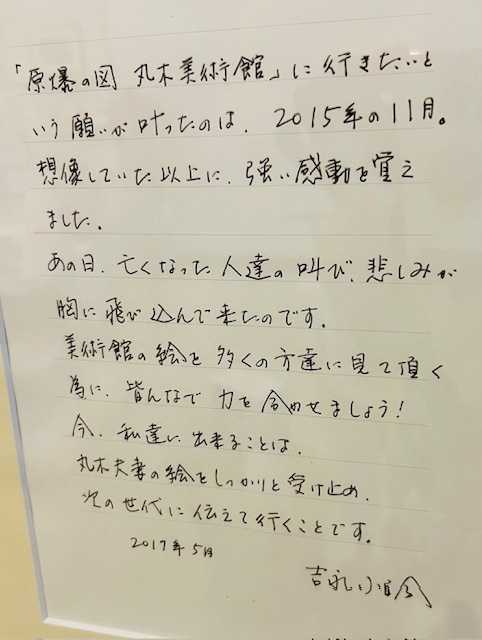 「原爆の図 丸木美術館」に行きたいと
いう願いが叶ったのは、2015年の11月。
想像していた以上に、強い感動を覚え
ました。
あの日、亡くなった人達の叫び、悲しみが
胸に飛び込んで来たのです。
美術館の絵を多くの方達に見て頂く
為に、皆んなで力を合わせましょう!
今、私達に出来ることは、
丸木夫妻の絵をしっかりと受け止め、
次の世代に伝えて行くことです。
2017年5月
吉永小百合